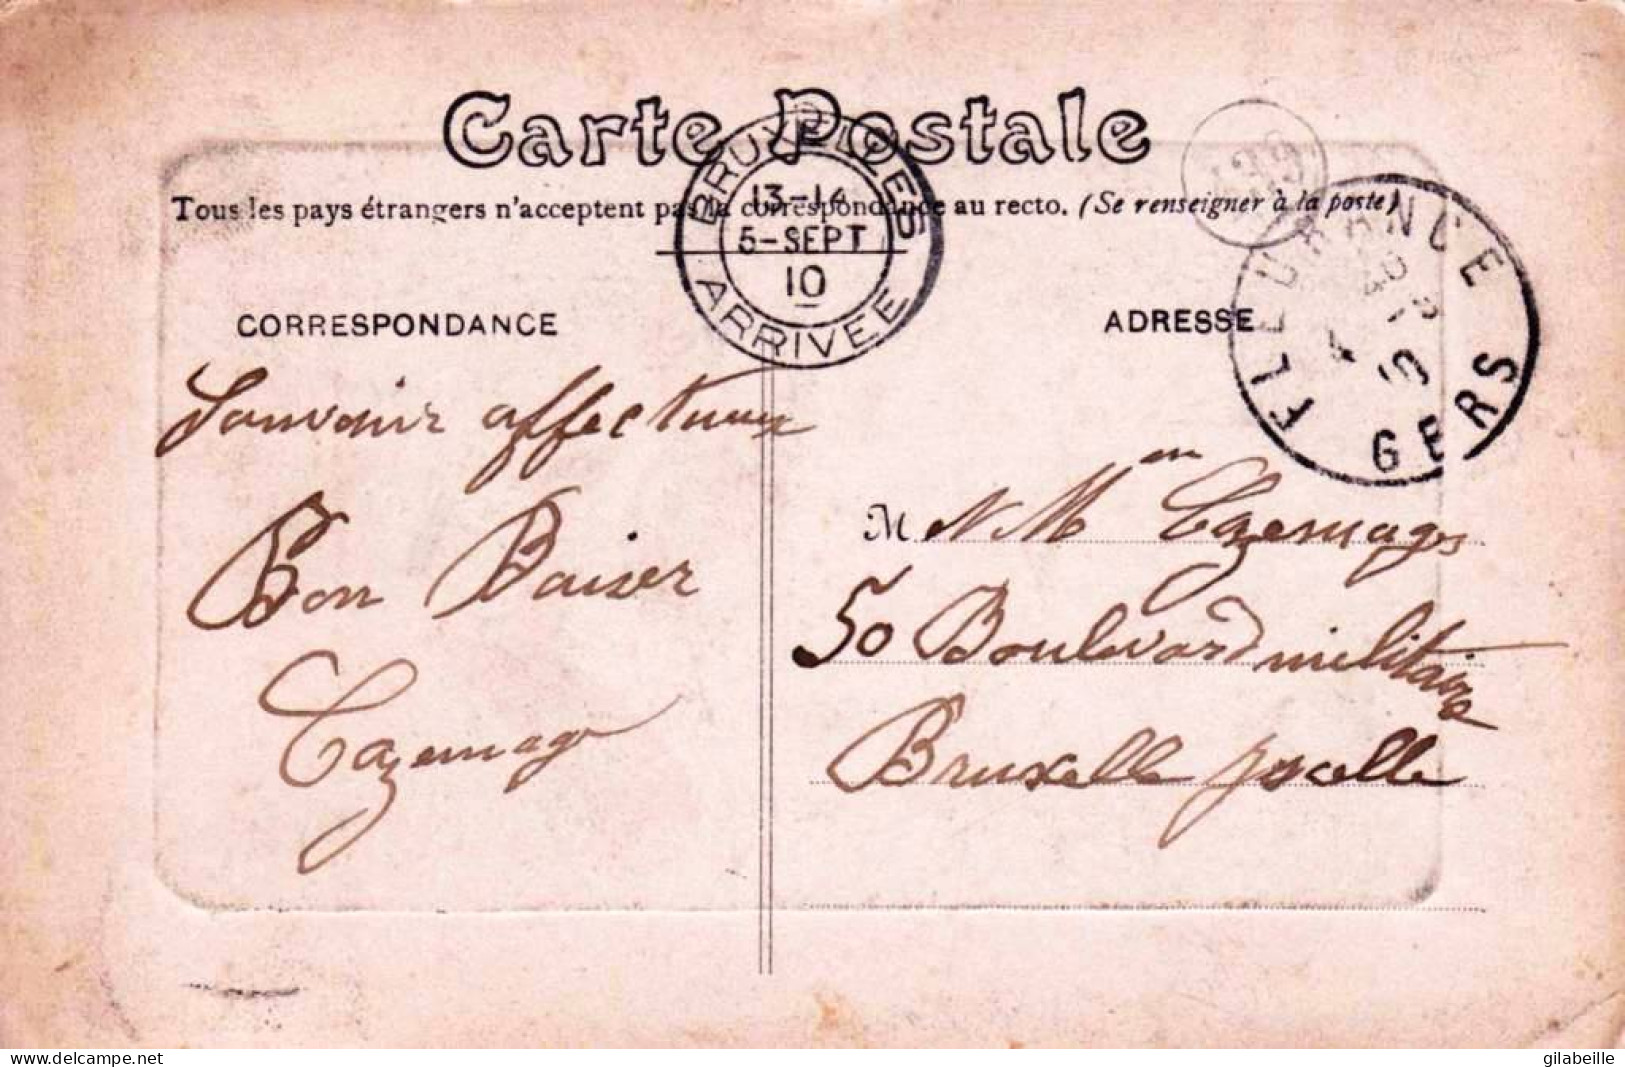 Carte Postale
Tous les pays étrangers n'acceptent pas la correspondance au recto. (Se renseigner à la poste)
BRUXELLES
13-14
5-SEPT
10
ARRIVEE
FLEURANCE
GERS
CORRESPONDANCE
ADRESSE
Souvenir affectueux
Bon Baiser
Cazemage
M
50 Boulevard militaire
Bruxelle
www.delcampe.net
gilabeille